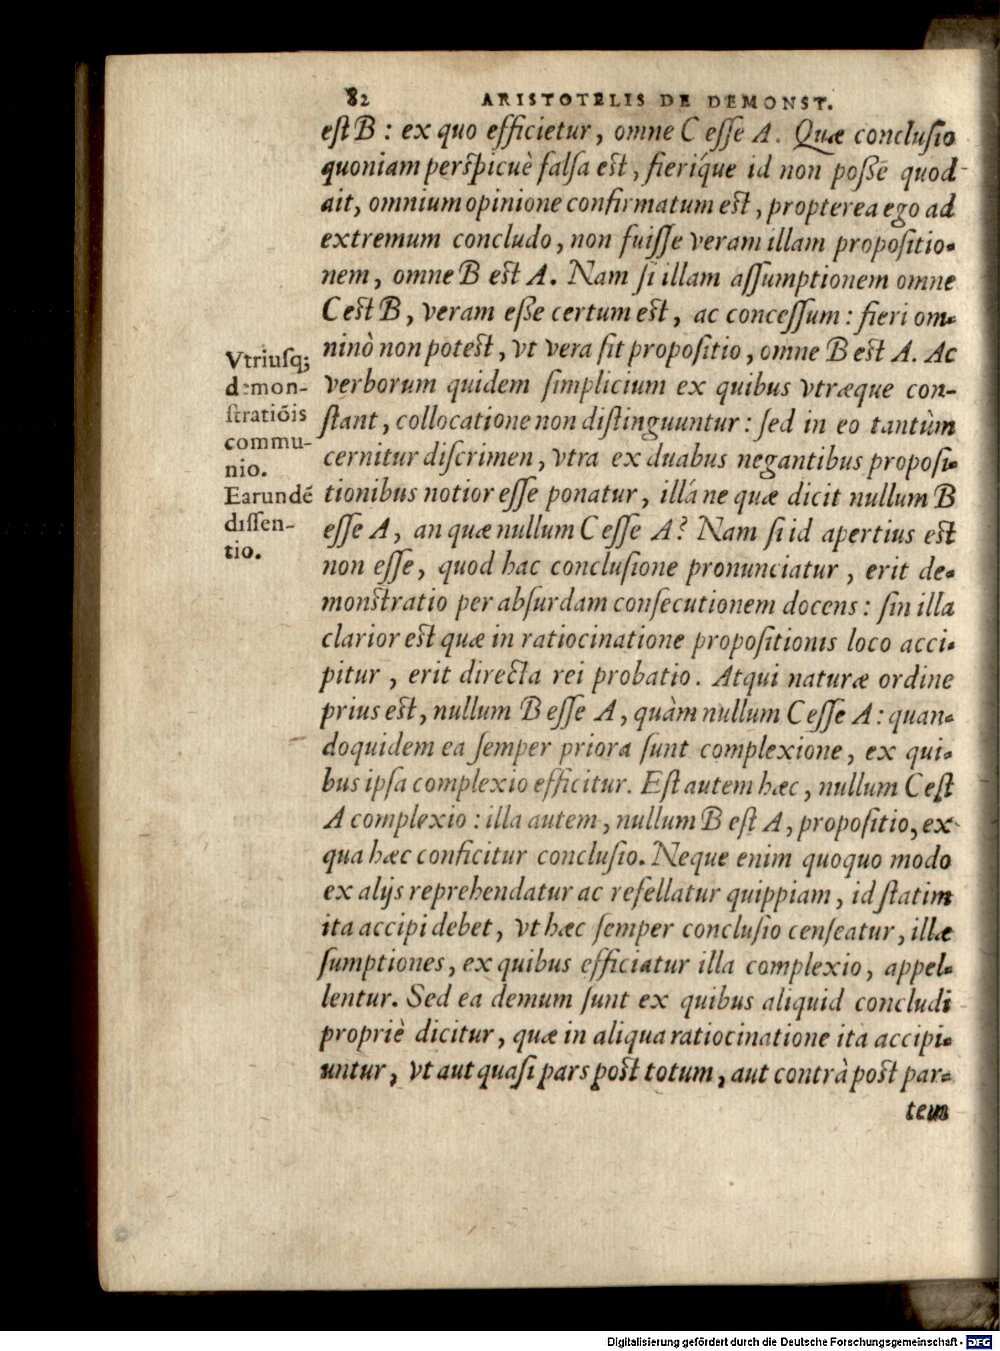 82 ARISTOTELIS DE DEMONST.
est B : ex quo efficietur, omne C esse A. Quæ conclusio
quoniam perspicuè falsa est, fieríque id non posse quod
ait, omnium opinione confirmatum est, propterea ego ad
extremum concludo, non fuisse veram illam propositio-
nem, omne B est A. Nam si illam assumptionem omne
C est B, veram esse certum est, ac concessum : fieri om-
ninò non potest, vt vera sit propositio, omne B est A. Ac
verborum quidem simplicium ex quibus vtræque con-
stant, collocatione non distinguuntur : sed in eo tantùm
cernitur discrimen, vtra ex duabus negantibus proposi-
tionibus notior esse ponatur, illá ne quæ dicit nullum B
esse A, an quæ nullum C esse A? Nam si id apertius est
non esse, quod hac conclusione pronunciatur, erit de-
monstratio per absurdam consecutionem docens : sin illa
clarior est quæ in ratiocinatione propositionis loco acci-
pitur, erit directa rei probatio. Atqui naturæ ordine
prius est, nullum B esse A, quàm nullum C esse A : quan-
doquidem ea semper priora sunt complexione, ex qui-
bus ipsa complexio efficitur. Est autem hæc, nullum C est
A complexio : illa autem, nullum B est A, propositio, ex
qua hæc conficitur conclusio. Neque enim quoquo modo
ex alijs reprehendatur ac refellatur quippiam, id statim
ita accipi debet, vt hæc semper conclusio censeatur, illæ
sumptiones, ex quibus efficiatur illa complexio, appel-
lentur. Sed ea demum sunt ex quibus aliquid concludi
propriè dicitur, quæ in aliqua ratiocinatione ita accipi-
untur, vt aut quasi pars post totum, aut contrà post par-
tem
Vtriusq;
demon-
stratiōis
commu-
nio.
Earundē
dissen-
tio.
Digitalisierung gefördert durch die Deutsche Forschungsgemeinschaft - DFG